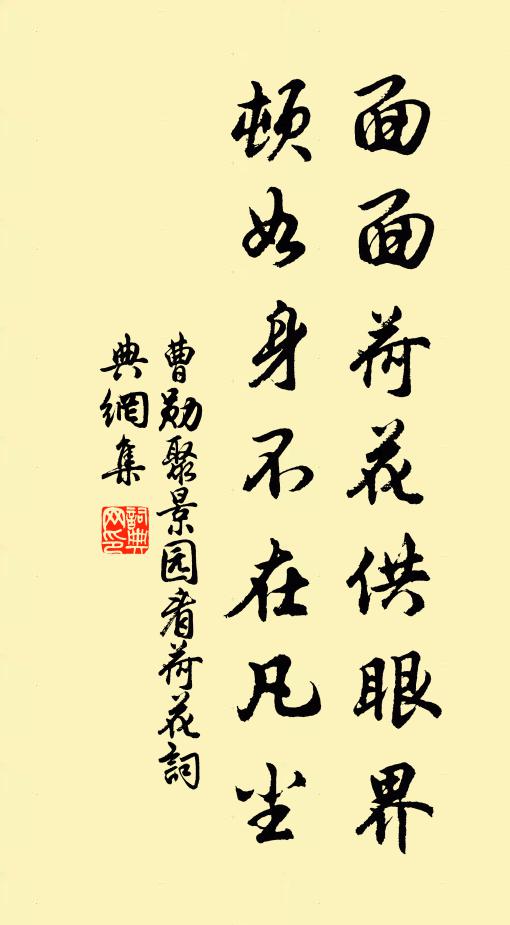 面面荷花供眼界
顿如身不在凡尘
曹勋聚景园看荷花詞
典網集
詞典
网印